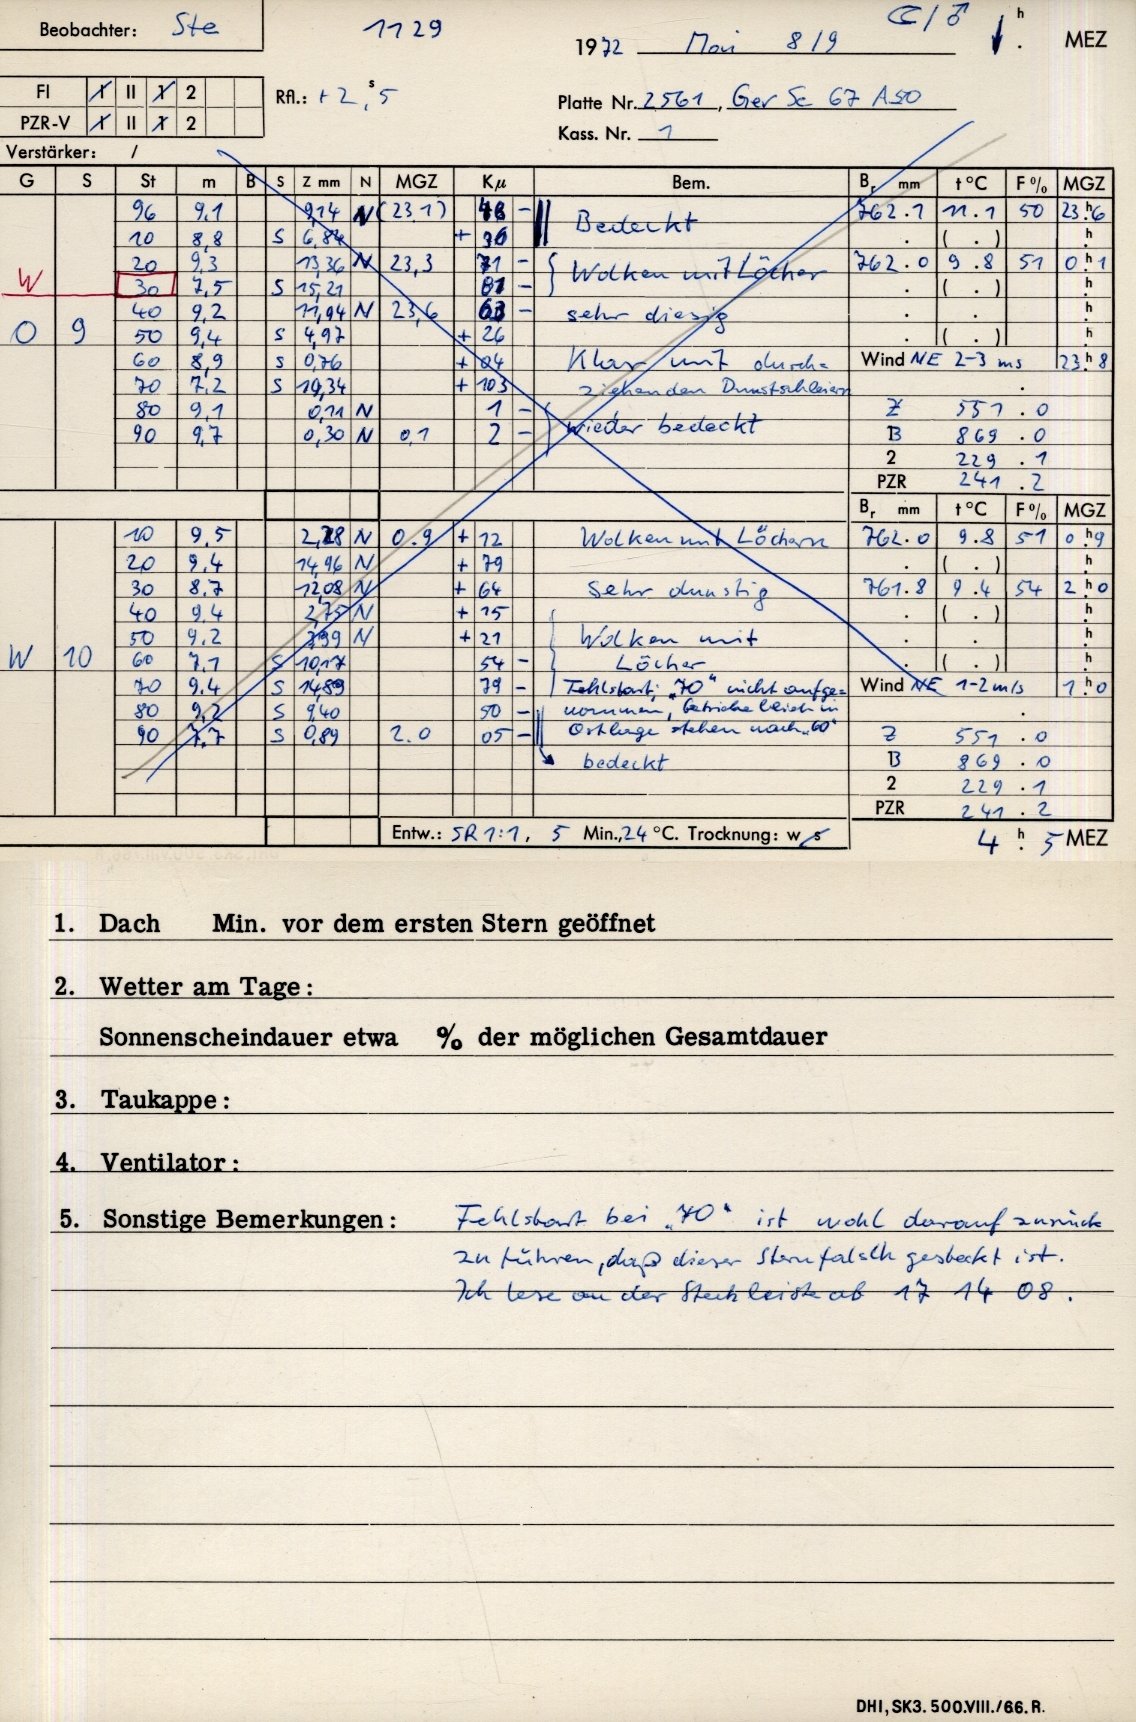 Beobachter: Ste 1129 1972 Mai 8/9 h MEZ
FI I II 1 2 Rfl.: +2,s5
PZR-V I II 1 2 Platte Nr. 2561, Ger Sc 67 A50
Kass. Nr. 1
Verstärker: /
G S St m B S Z mm N MGZ Kµ Bem. Br mm t °C F % MGZ
96 9,1 9,14 N (23,1) - Bedeckt 762.1 11.1 50 23.h6
10 8,8 S 6,84 + 36 . ( . ) h
20 9,3 13,36 N 23,3 71 - Wolken mit Löcher 762.0 9.8 51 0.h1
W 30 7,5 S 15,21 81 - . ( . ) h
40 9,2 11,94 N 23,6 63 - sehr diesig . . h
O 9 50 9,4 S 4,97 + 26 . ( . ) h
60 8,9 S 0,76 + 04 Klar mit durch= Wind NE 2-3 ms 23.h8
70 7,2 S 19,34 + 103 ziehenden Dunstschleiern .
80 9,1 0,11 N 1 - wieder bedeckt Z 551.0
90 9,7 0,30 N 0,1 2 - B 869.0
2 229.1
PZR 241.2
Br mm t °C F % MGZ
10 9,5 2,28 N 0.9 + 12 Wolken mit Löchern 762.0 9.8 51 0.h9
20 9,4 14,96 N + 79 . ( . ) h
30 8,7 12,08 N + 64 Sehr dunstig 761.8 9.4 54 2.h0
40 9,4 2,75 N + 15 . ( . ) h
50 9,2 3,99 N + 21 Wolken mit . . h
W 10 60 7,1 S 10,17 54 - Löcher . ( . ) h
70 9,4 S 14,89 79 - Fehlstart; "70" nicht aufge= Wind NE 1-2 m/s 1.h0
80 9,2 S 9,40 50 - nommen, Getriebe blieb in .
90 7,7 S 0,89 2.0 05 - Ostlage stehen nach "60" Z 551.0
bedeckt B 869.0
2 229.1
PZR 241.2
Entw.: SR 1:1, 5 Min., 24 °C. Trocknung: w s 4.h5 MEZ
1. Dach Min. vor dem ersten Stern geöffnet
2. Wetter am Tage:
Sonnenscheindauer etwa % der möglichen Gesamtdauer
3. Taukappe:
4. Ventilator:
5. Sonstige Bemerkungen: Fehlstart bei "70" ist wohl darauf zurück
zu führen, daß dieser Stern falsch gesteckt ist.
Ich lese an der Steckleiste ab 17 14 08.
DHI, SK3. 500.VIII./66. R.